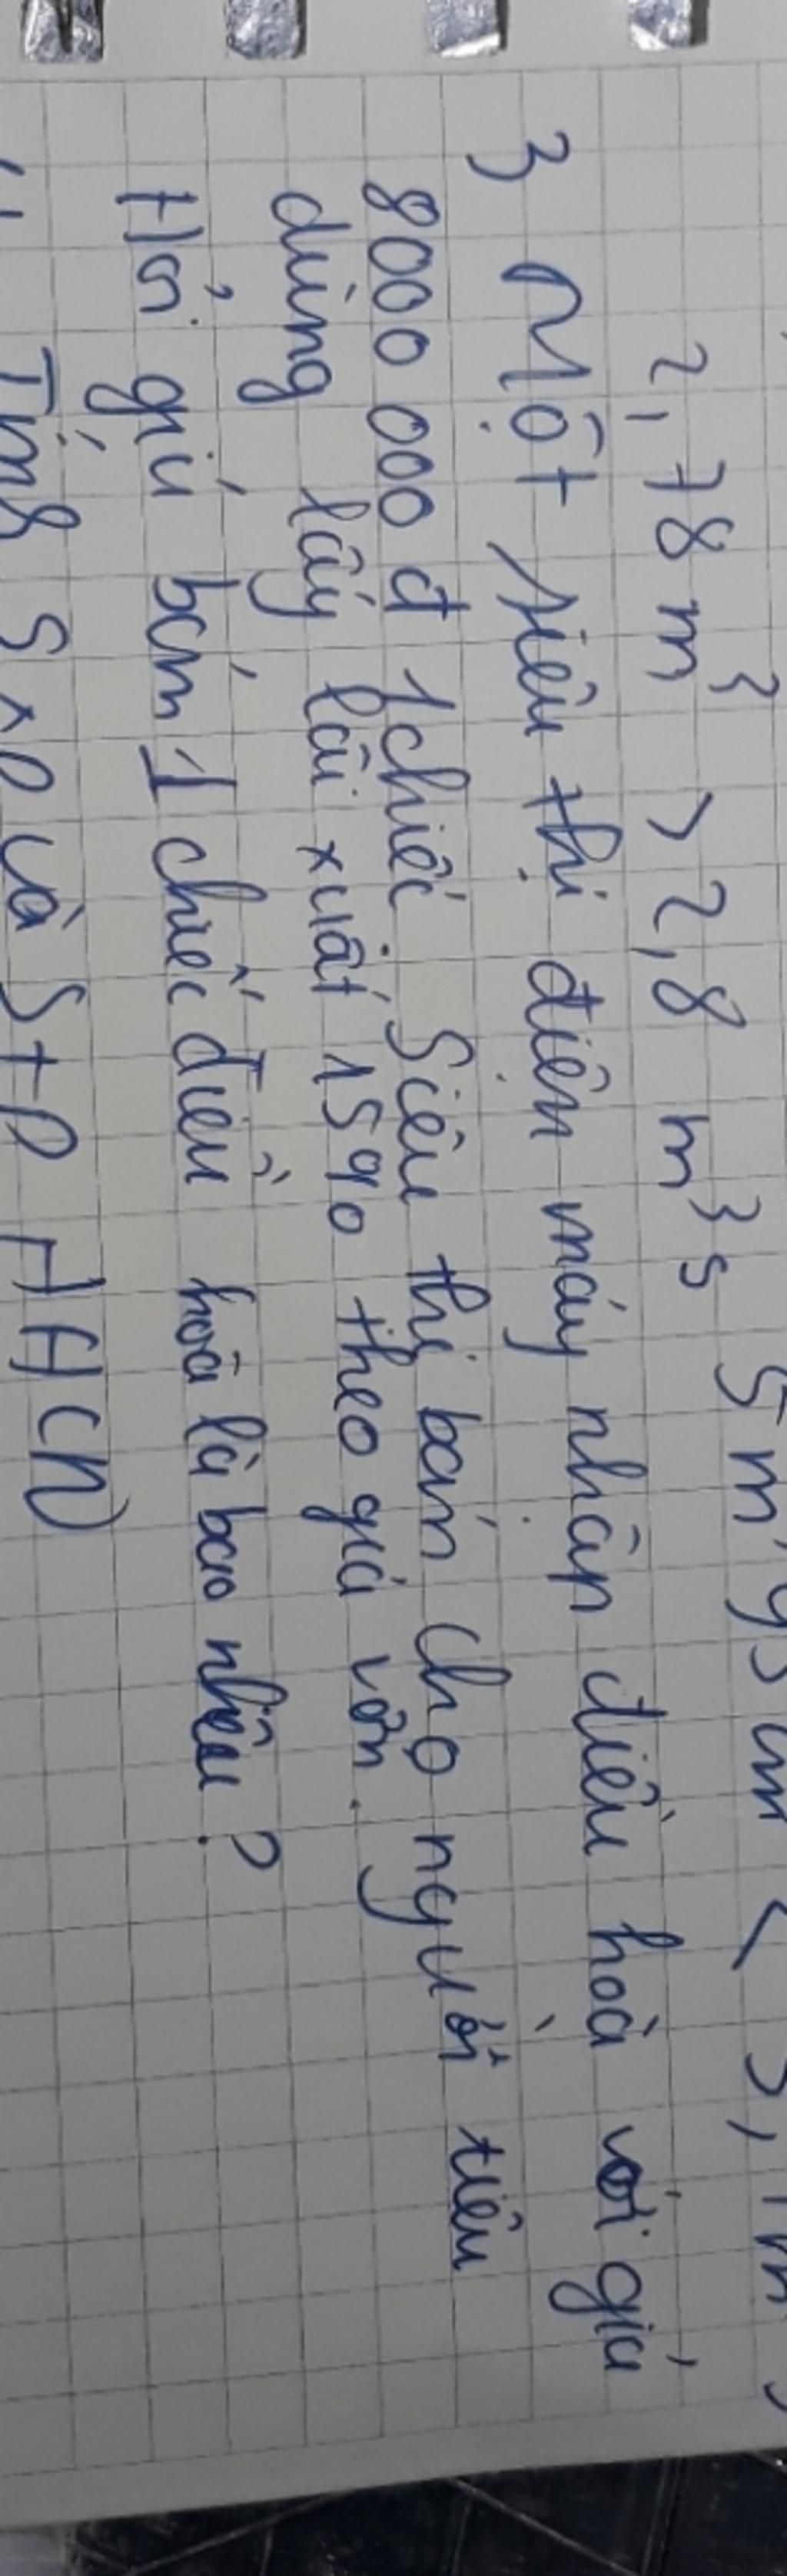 2,78 m³ > 2,8 m³ s
3 Một siêu thị điện máy nhập điều hoà với giá
8000 000 đ 1 chiếc Siêu thị bán cho người tiêu
dùng lấy lãi xuất 15% theo giá vốn.
Hỏi giá bán 1 chiếc điều hoà là bao nhiêu ?
Tính Sxp và Stp HHCN